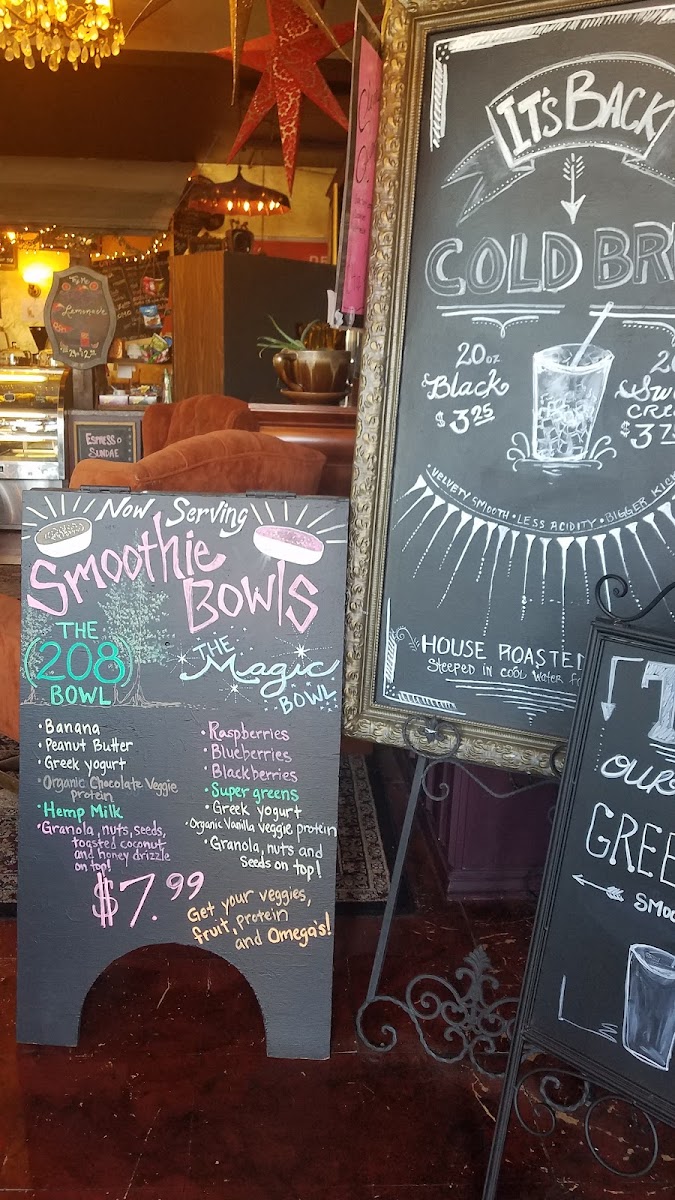 Now Serving
Smoothie
Bowls
THE
208
BOWL
• Banana
• Peanut Butter
• Greek yogurt
• Organic Chocolate Veggie
protein
• Hemp Milk
• Granola, nuts, seeds,
toasted coconut
and honey drizzle
on top!
THE
Magic
BOWL
• Raspberries
• Blueberries
• Blackberries
• Super greens
• Greek yogurt
• Organic Vanilla veggie protein
• Granola, nuts and
seeds on top!
$7.99
Get your veggies,
fruit, protein
and Omega's!
IT'S BACK
COLD BR
20oz
Black
$3.25
CRE
$3.75
• VELVETY SMOOTH • LESS ACIDITY • BIGGER KICK
HOUSE ROASTED
STEEPED IN COOL WATER
OUR
GREE
SMOO
Lemonade
ESPRESSO
SUNDAE